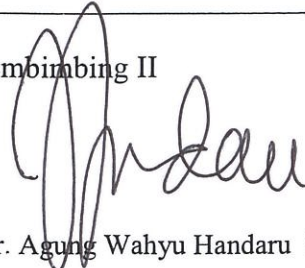 mbimbing II
r. Agung Wahyu Handaru